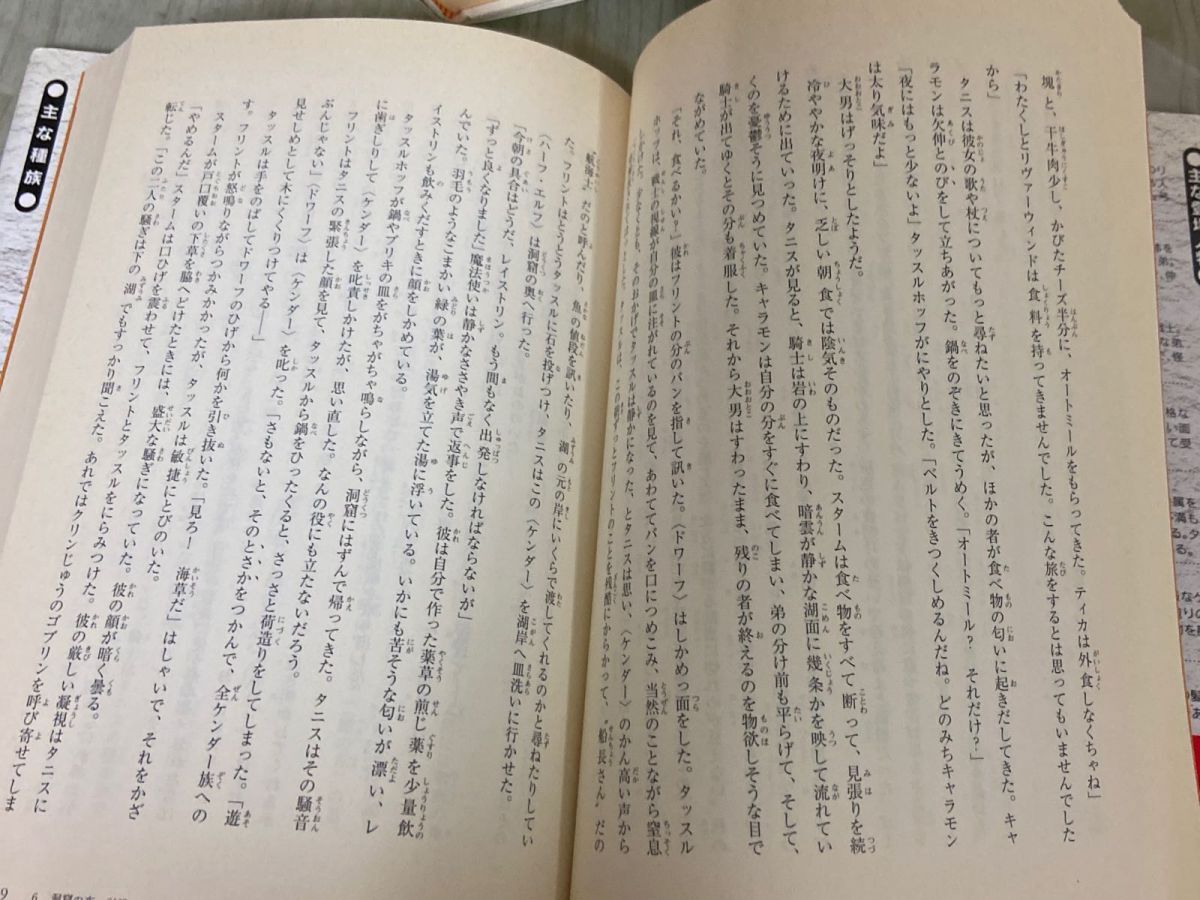 塊と、干牛肉少し、かびたチーズ半分に、オートミールをもらってきた。ティカは外食しなくちゃね」
「わたくしとリヴァーウィンドは食料を持ってきませんでした。こんな旅をするとは思ってもいませんでした
から」
タニスは彼女の歌や杖についてもっと尋ねたいと思ったが、ほかの者が食べ物の匂いに起きだしてきた。キャ
ラモンは欠伸とのびをして立ちあがった。鍋をのぞきにきてうめく。「オートミール? それだけ?」
「夜にはもっと少ないよ」タッスルホッフがにやりとした。「ベルトをきつくしめるんだね。どのみちキャラモン
は太り気味だよ」
大男はげっそりとしたようだ。
冷ややかな夜明けに、乏しい朝食では陰気そのものだった。スタームは食べ物をすべて断って、見張りを続
けるために出ていった。タニスが見ると、騎士は岩の上にすわり、暗雲が静かな湖面に幾条かを映して流れてい
くのを憂鬱そうに見つめていた。キャラモンは自分の分をすぐに食べてしまい、弟の分け前も平らげて、そして、
騎士が出てゆくとその分も着服した。それから大男はすわったまま、残りの者が終えるのを物欲しそうな目で
ながめていた。
「それ、食べるかい?」彼はフリントの分のパンを指して訊いた。〈ドワーフ〉はしかめっ面をした。タッスル
ホッフは、戦士の視線が自分の皿に注がれているのを見て、あわててパンを口につめこみ、当然のことながら窒息
しかけた。少なくとも、そのおかげでタッスルは静かになった、とタニスは思い、〈ケンダー〉のかん高い声から
タッスルは、この朝ずっとフリントのことを残酷にからかって、〝船長さん〟だの
〝航海士〟だのと呼んだり、魚の値段を訊いたり、湖の元の岸にいくらで渡してくれるのかと尋ねたりしてい
た。フリントはとうとうタッスルに石を投げつけ、タニスはこの〈ケンダー〉を湖岸へ皿洗いに行かせた。
〈ハーフ・エルフ〉は洞窟の奥へ行った。
「今朝の具合はどうだ、レイストリン。もう間もなく出発しなければならないが」
「ずっと良くなりました」魔法使いは静かなささやき声で返事をした。彼は自分で作った薬草の煎じ薬を少量飲
んでいた。羽毛のようなこまかい緑の葉が、湯気を立てた湯に浮いている。いかにも苦そうな匂いが漂い、レ
イストリンも飲みくだすときに顔をしかめている。
タッスルホッフが鍋やブリキの皿をがちゃがちゃ鳴らしながら、洞窟にはずんで帰ってきた。タニスはその騒音
に歯ぎしりして〈ケンダー〉を叱責しかけたが、思い直した。なんの役にも立たないだろう。
フリントはタニスの緊張した顔を見て、タッスルから鍋をひったくると、さっさと荷造りをしてしまった。「遊
ぶんじゃない」〈ドワーフ〉は〈ケンダー〉を叱った。「さもないと、そのとさかをつかんで、全ケンダー族への
見せしめとして木にくくりつけてやる――」
タッスルは手をのばしてドワーフのひげから何かを引き抜いた。「見ろ! 海草だ」はしゃいで、それをかざ
す。フリントが怒鳴りながらつかみかかったが、タッスルは敏捷にとびのいた。
スタームが戸口覆いの下草を脇へどけたときには、盛大な騒ぎになっていた。彼の顔が暗く曇る。
「やめるんだ」スタームは口ひげを震わせて、フリントとタッスルをにらみつけた。彼の厳しい凝視はタニスに
転じた。「この二人の騒ぎは下の湖でもすっかり聞こえた。あれではクリンじゅうのゴブリンを呼び寄せてしま
9
6
主な種族